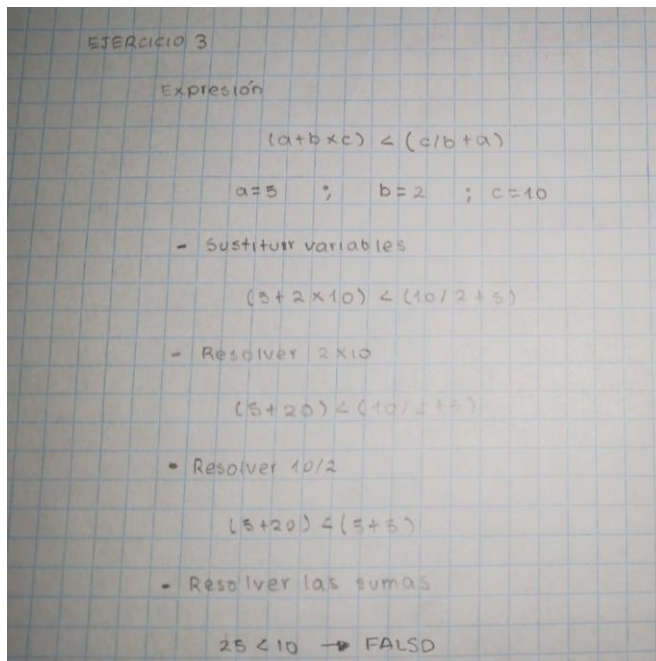 EJERCICIO 3
Expresión
(a+b×c) < (c/b+a)
a=5 ; b=2 ; c=10
- Sustituir variables
(5+2×10) < (10/2+5)
- Resolver 2×10
(5+20) < (10/2+5)
- Resolver 10/2
(5+20) < (5+5)
- Resolver las sumas
25 < 10 → FALSO